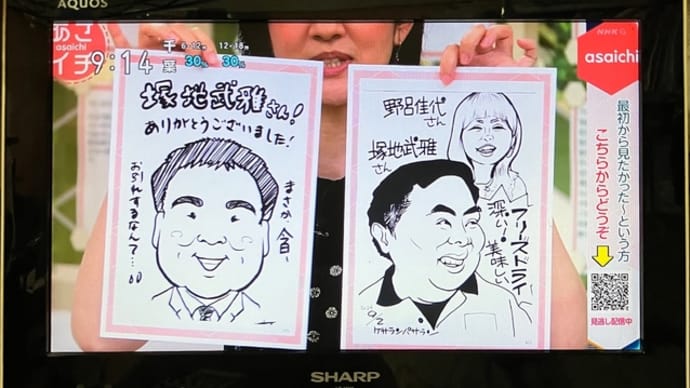 AQUOS
あさ
イチ
asaichi
9:14
千葉
6-12時 12-18時
30% 30%
NHK G
asaichi
最初から見たかった～という方
こちらからどうぞ
見逃し配信中
塚地武雅さん!
ありがとうございました!
まさか、今日〜
お別れするなんて…
野呂佳代さん
塚地武雅さん
フリーズドライ
深い!美味しい
9/2
ケサランパサラン
SHARP